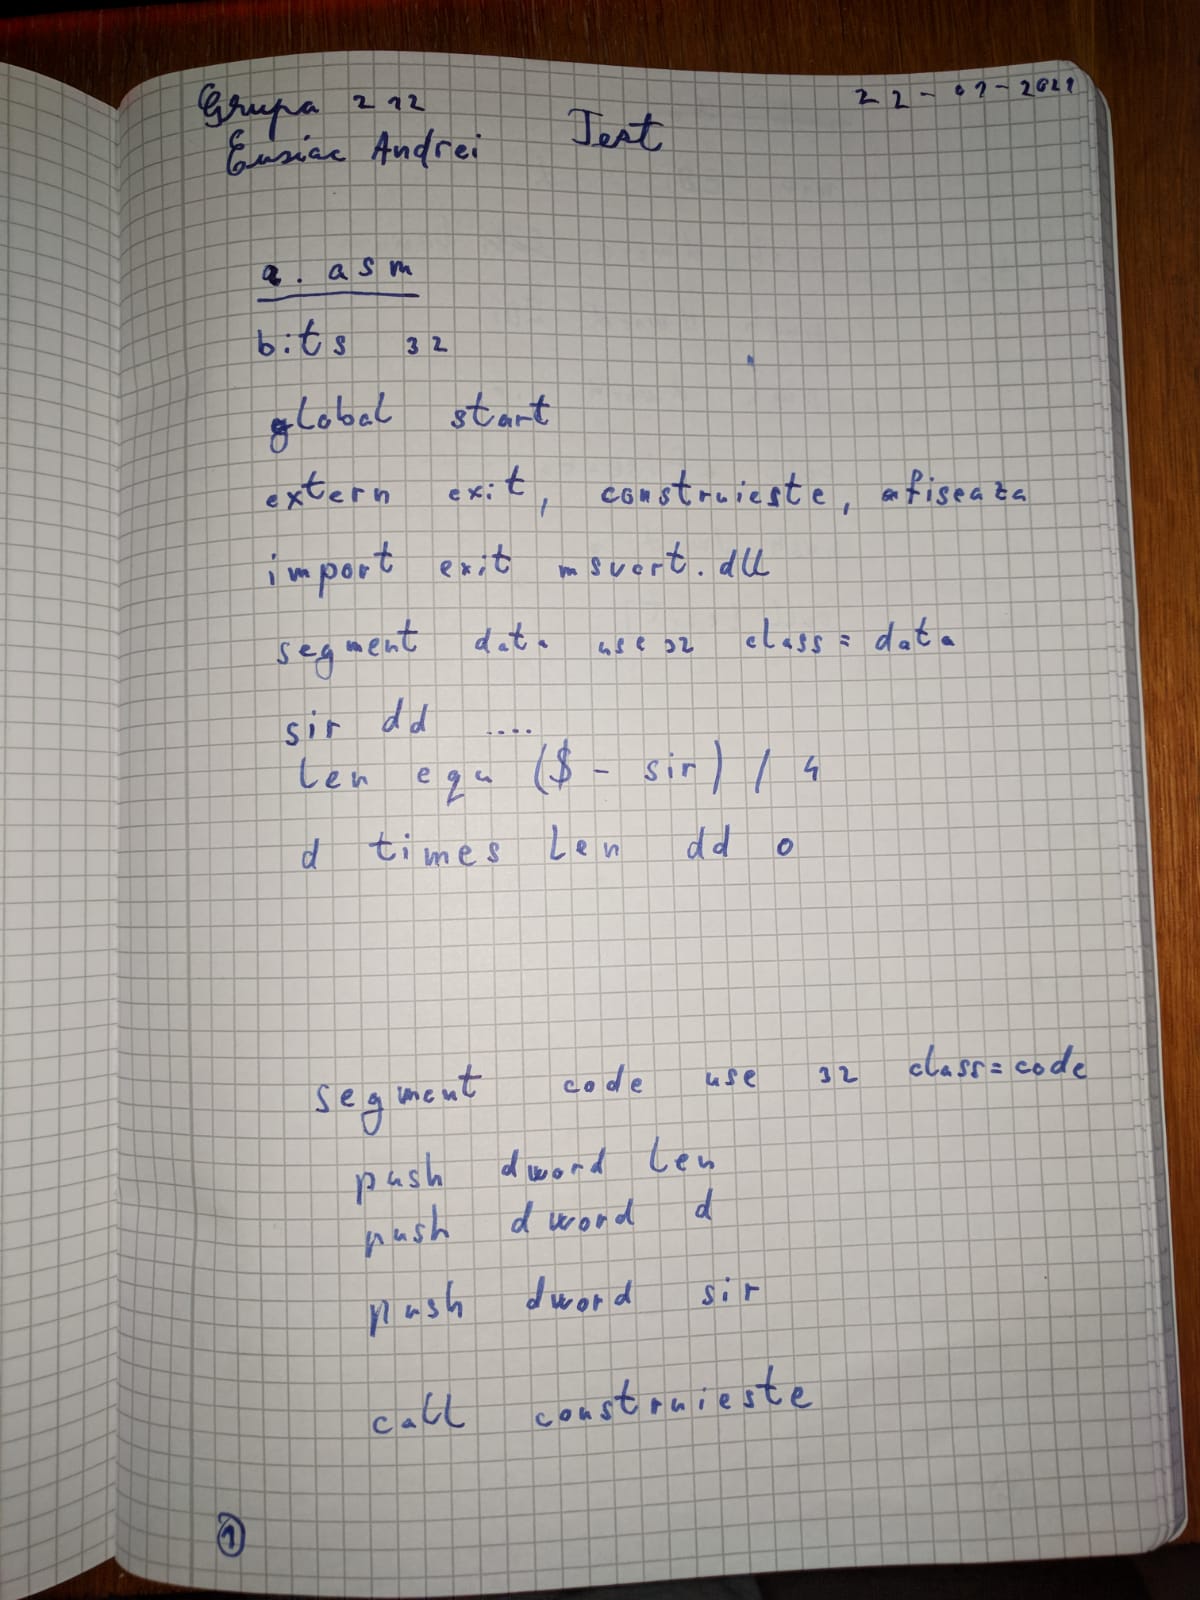 Grupa 212
22-01-2021
Eusiac Andrei
Test
a. asm
bits 32
global start
extern exit, construieste, afiseaza
import exit msvcrt.dll
segment data use 32 class = data
sir dd ....
len equ ($ - sir) / 4
d times len dd 0
segment code use 32 class = code
push dword len
push dword d
push dword sir
call construieste
1